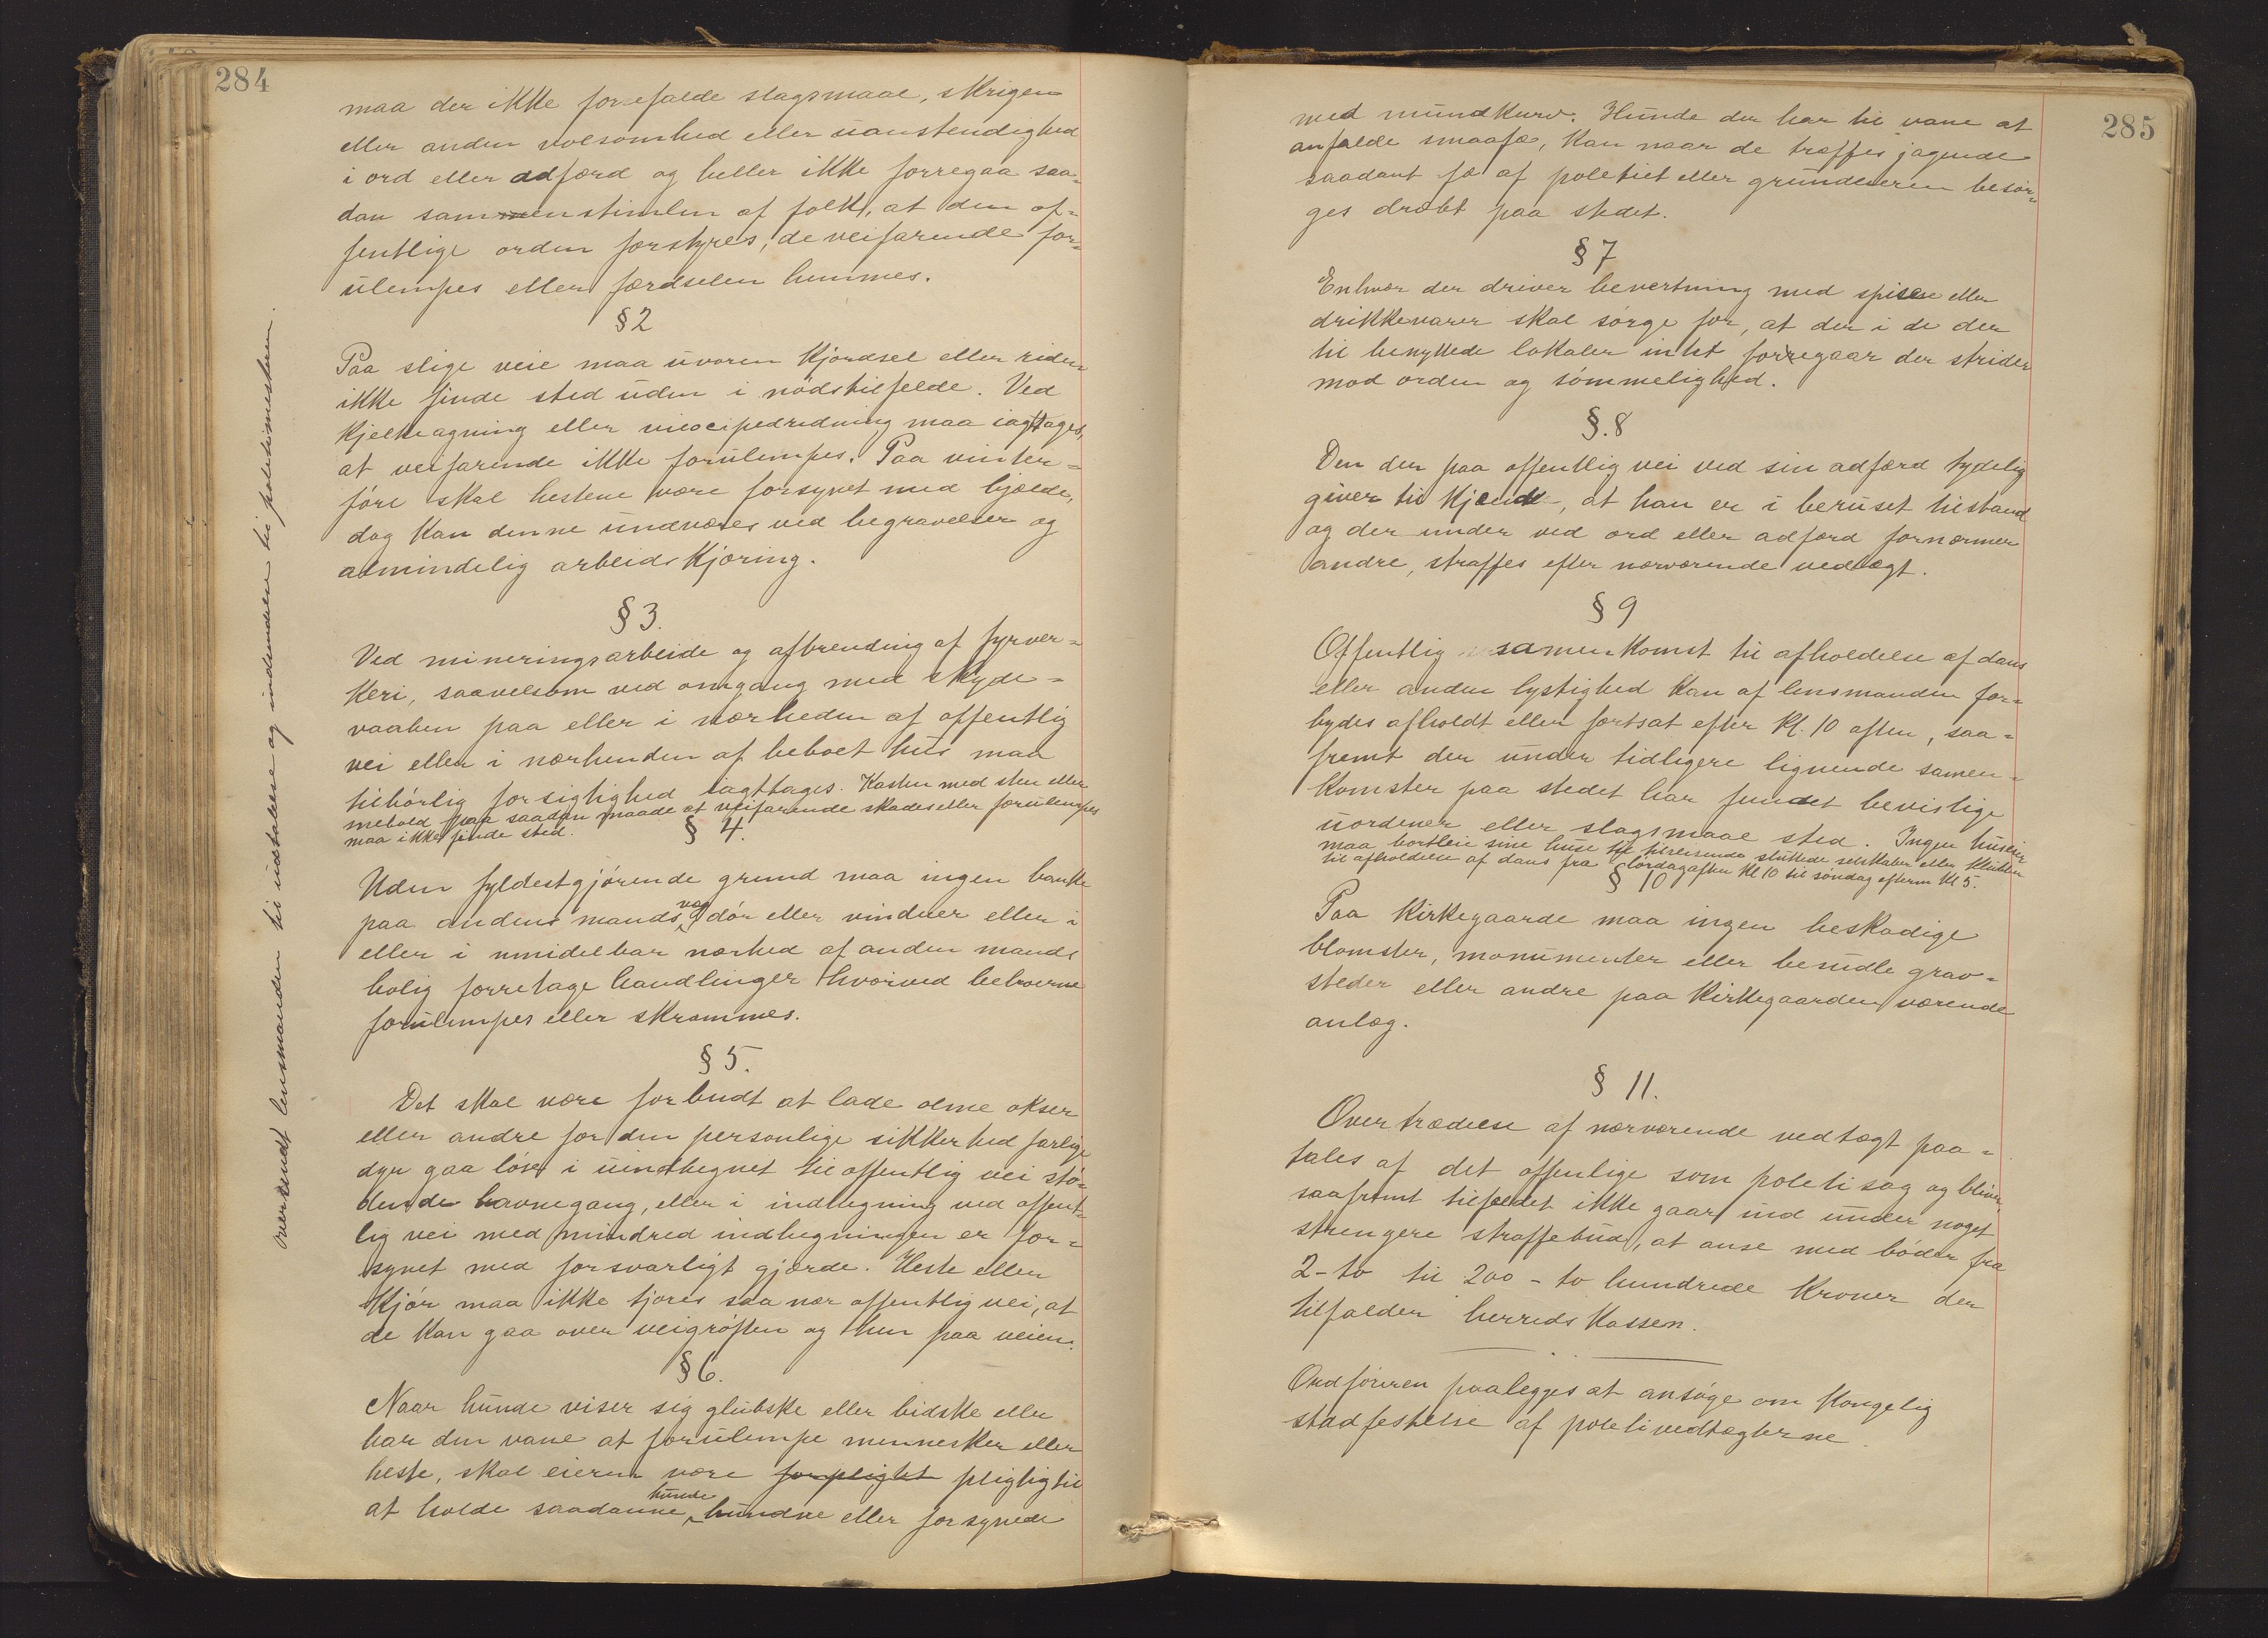 284
maa der ikke forefalde slagsmaal, skrigen
eller anden volsomhed eller uanstendighed
i ord eller adfærd og heller ikke forregaa saa-
dan sammenstimlen af folk, at den of-
fentlige orden forstyres, de veifarende for-
ulempes eller færdselen hemmes.
§ 2
Paa slige veie maa uvoren kjørdsel eller riden
ikke finde sted uden i nødstilfelde. Ved
Kjelkeagning eller vieocipedredning maa iagttages,
at veifarende ikke forulempes. Paa vinter-
føre skal hestene være forsynet med bjælde,
dog kan denne undværes ved begravelser og
almindelig arbeidskjøring.
§ 3.
Ved mineringsarbeide og afbrending af fyrver-
keri, saavelsom ved omgang med skyde-
vaaben paa eller i nærheden af offentlig
vei eller i nærheden af beboet hus maa
tilbørlig forsigtighed iagttages. Kasten med sten eller
snebold paa saadan maade at veifarende skades eller forulempes
maa ikke finde sted.
§ 4.
Uden fyldestgjørende grund maa ingen banke
paa andens mands væg dør eller vinduer eller i
eller i umidelbar nærhed af anden mands
bolig forretage handlinger hvorved beboerne
forulempes eller skræmmes.
§ 5.
Det skal være forbudt at lade olme okser
eller andre for den personlige sikkerhed farlige
dyr gaa løse i uindhegnet til offentlig vei stø-
dende havnegang, eller i indhegning ved offent-
lig vei med mindred indhegningen er for-
synet med forsvarligt gjærde. Heste eller
Kjør maa ikke tjores saa nær offentlig vei, at
de kan gaa over veigrøften og hen paa veien.
§ 6.
Naar hunde viser sig glubske eller bidske eller
har den vane at forulempe mennesker eller
heste, skal eieren være forpligtet pligtig til
at holde saadanne hunde bundne eller forsynede
oversendt lensmanden til udtalelse og indsendes til politimesteren.
285
med mundkurv. Hunde der har til vane at
anfalde smaafæ, kan naar de træffes jagende
saadant fæ af politiet eller grundeieren besør-
ges dræbt paa stedet.
§ 7
Enhver der driver bevertning med spise eller
drikkevarer skal sørge for, at der i de der
til benyttede lokaler intet forregaar der strider
mod orden og sømmelighed.
§. 8
Den der paa offentlig vei ved sin adfærd tydelig
giver til kjende, at han er i beruset tilstand
og der under ved ord eller adfærd fornærmer
andre, straffes efter nærværende vedtægt.
§ 9
Offentlig samenkomst til afholdelse af dans
eller anden lystighed kan af lensmanden for-
bydes afholdt eller fortsat efter kl. 10 aften, saa-
fremt der under tidligere lignende samen-
komster paa stedet har fundet bevislige
uordener eller slagsmaal sted. Ingen huseier
maa bortleie sine huse til tilreisende sluttede selskaber eller klubber
til afholdelse af dans fra lørdagaften kl 10 til søndag efterm kl 5.
§ 10
Paa Kirkegaarde maa ingen beskadige
blomster, monumenter eller besudle grav-
steder eller andre paa Kirkegaarden værende
anlæg.
§ 11.
Overtrædelse af nærværende vedtægt paa-
tales af det offenlige som poletisag og bliver
saafremt tilfældet ikke gaar ind under noget
strengere straffebud, at anse med bøder fra
2 - to til 200 - to hundrede Kroner der
tilfalder herredskassen.
Ordføreren paalegges at ansøge om kongelig
stadfestelse af poletivedtægterne.